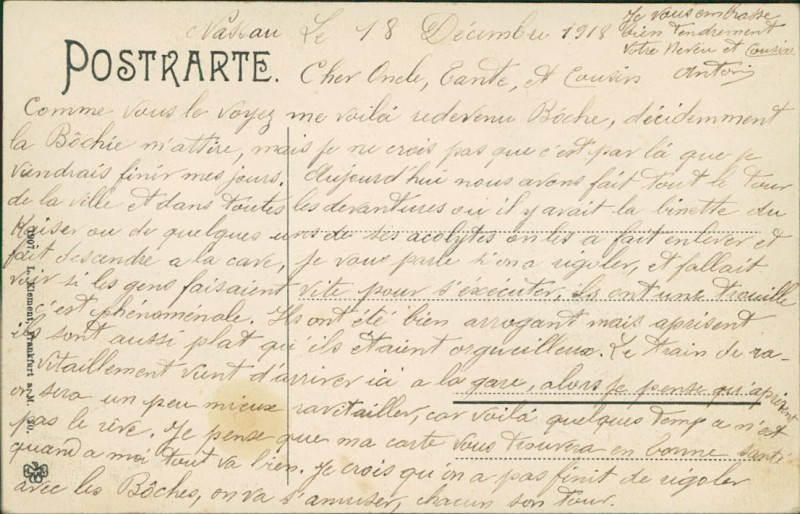 Nassau Le 18 Décembre 1918
Je vous embrasse
bien tendrement
votre Neveu et Cousin
Antoin
POSTKARTE.
Cher Oncle, Tante, et Cousin
Comme vous le voyez me voilà redevenu Bôche, décidemment
la Bôchie m'attire, mais je ne crois pas que c'est par là que je
viendrais finir mes jours. Aujourd'hui nous avons fait tout le tour
de la ville et dans toutes les devantures ou il y avait la binette du
Kaiser ou de quelques uns de ses acolytes on les a fait enlever et
fait descendre a la cave, je vous parle si on a rigoler, et fallait
voir si les gens faisaient vite pour s'éxécuter, ils ont une trouille
c'est phénoménale. Ils ont été bien arrogant mais aprisent
ils sont aussi plat qu'ils etaient orgueilleux. Le train de ra-
vitaillement vient d'arriver ici a la gare, alors je pense qu'aprisent
on sera un peu mieux ravitailler, car voilà quelques temp a n'est
pas le rêve. Je pense que ma carte vous trouvera en bonne santé
quand a moi tout va bien. Je crois qu'on a pas finit de rigoler
avec les Bôches, on va s'amuser, chacun son tour.
1907 L. Klement, Frankfurt a. M.